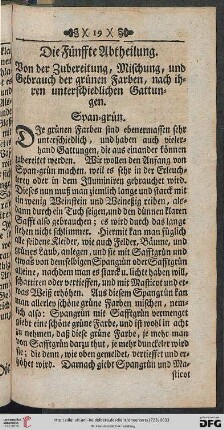 19
Die Fünffte Abtheilung.
Von der Zubereitung, Mischung, und
Gebrauch der grünen Farben, nach ih-
ren unterschiedlichen Gattun-
gen.
Span-grün.
DJe grünen Farben sind ebenermassen sehr
unterschiedlich, und haben auch vieler-
hand Gattungen, die aus einander können
zubereitet werden. Wir wollen den Anfang von
Span-grün machen, weil es sehr in der Erleuch-
terey oder in dem Illuminiren gebrauchet wird.
Dieses nun muß man ziemlich lange und starck mit
ein wenig Weinstein und Weinessig reiben, als-
dann durch ein Tuch sigen, und den dünnen klaren
Safft also gebrauchen; es wird durch das lange
stehen nicht schlimmer. Hiermit kan man füglich
alle seidene Kleider, wie auch Felder, Bäume, und
kluges Laub, anlegen, und ist mit Safftgrün und
was von demselbigen Spangrün oder Safftgrün
alleine, nachdem man es starck u. licht haben will,
schattiren oder vertieffen, und mit Masticot und et-
was Weiß erhöhen. Aus diesem Spangrün kan
man allerley schöne grüne Farben mischen, nem-
lich also: Spangrün mit Safftgrün vermenget
giebt eine schöne grüne Farbe, und ist wohl in acht
zu nehmen, daß diese grüne Farbe, je mehr man
von Safftgrün darzu thut, je mehr dunckeler wird
sie; die denn, wie oben gemeldet, vertieffet und er-
höhet wird. Darnach giebt Spangrün und Ma-
sticot